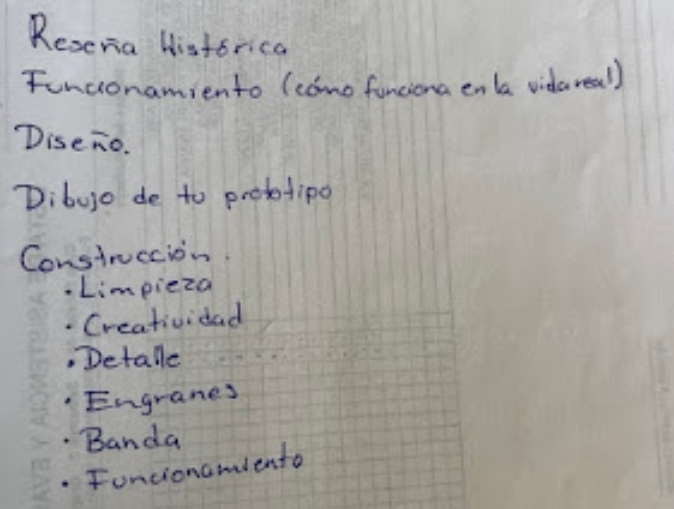 Reseña Histórica
Funcionamiento (cómo funciona en la vida real)
Diseño.
Dibujo de tu prototipo
Construcción.
• Limpieza
• Creatividad
• Detalle
• Engranes
• Banda
• Funcionamiento